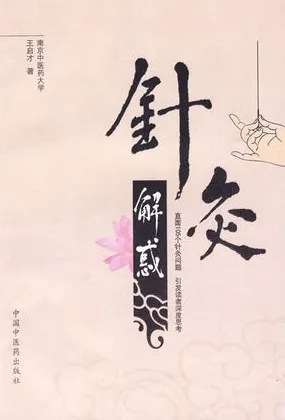 南京中医药大学
王启才 著
針灸
解惑
直面 个针灸问题 引发读者深度思考
中国中医药出版社